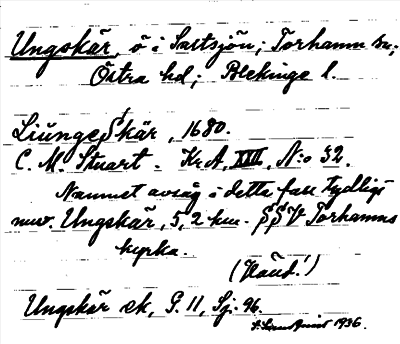 Ungskär, ö i Saltsjön; Torhamn sn;
Östra hd; Blekinge l.
Liünge Skär, 1680.
C. M. Stuart. Kr.A, XXII, N:o 32.
Namnet avsåg i detta fall tydligt
nuv. Ungskär, 5,2 km. SSV Torhamns
kyrka.
Ungskär ek, G. 11, Sj: 96.
1936.